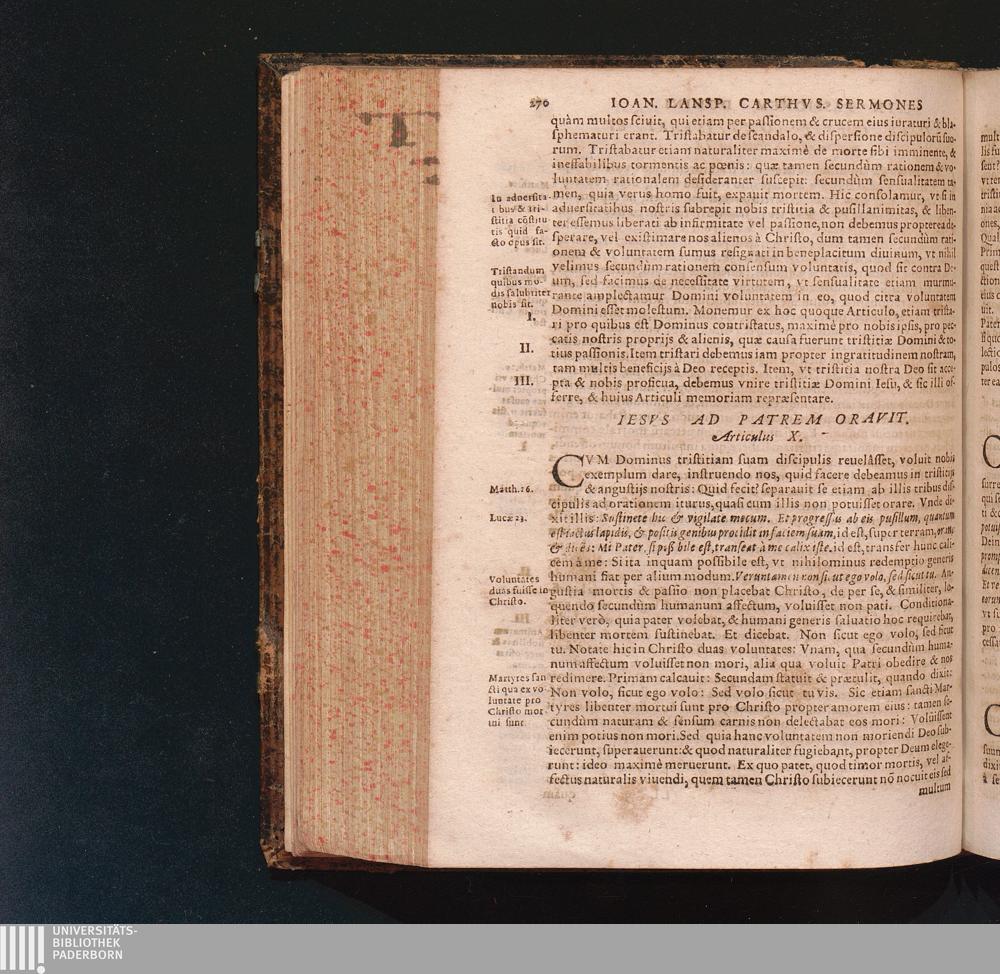 270 IOAN. LANSP. CARTHVS. SERMONES
quàm multos sciuit, qui etiam per passionem & crucem eius iuraturi & bla-
sphematuri erant. Tristabatur de scandalo, & dispersione discipulorũ suo-
rum. Tristabatur etiam naturaliter maximè de morte sibi imminente, &
ineffabilibus tormentis ac pœnis: quæ tamen secundùm rationem & vo-
luntatem rationalem desideranter suscepit: secundùm sensualitatem ta-
men, quia verus homo fuit, expauit mortem. Hic consolamur, vt si in
aduersitatibus nostris subrepit nobis tristitia & pusillanimitas, & liben-
ter essemus liberati ab infirmitate vel passione, non debemus propterea de-
sperare, vel existimare nos alienos à Christo, dum tamen secundùm rati-
onem & voluntatem sumus resignati in beneplacitum diuinum, vt nihil
velimus secundùm rationem consensum voluntatis, quod sit contra De-
um, sed facimus de necessitate virtutem, vt sensualitate etiam murmu-
rante amplectamur Domini voluntatem in eo, quod citra voluntatem
Domini esset molestum. Monemur ex hoc quoque Articulo, etiam trista-
ri pro quibus est Dominus contristatus, maximè pro nobis ipsis, pro pec-
catis nostris proprijs & alienis, quæ causa fuerunt tristitiæ Domini & to-
tius passionis. Item tristari debemus iam propter ingratitudinem nostram,
tam multis beneficijs à Deo receptis. Item, vt tristitia nostra Deo sit acce-
pta & nobis proficua, debemus vnire tristitiæ Domini Iesu, & sic illi of-
ferre, & huius Articuli memoriam repræsentare.
In aduersita
t bus & tri-
stitia cõstitu
tis quid fa-
cto opus sit.
Tristandum
quibus mo-
dis salubriter
nobis sit.
I.
II.
III.
IESVS AD PATREM ORAVIT.
Articulus X.
CVM Dominus tristitiam suam discipulis reuelâsset, voluit nobis
exemplum dare, instruendo nos, quid facere debeamus in tristitijs
& angustijs nostris: Quid fecit? separauit se etiam ab illis tribus dis-
cipulis ad orationem iturus, quasi cum illis non potuisset orare. Vnde di-
xit illis: Sustinete hic & vigilate mecum. Et progressus ab eis pusillum, quantum
est iactus lapidis, & positis genibus procidit in faciem suam, id est, super terram, orans
& dicẽs: Mi Pater, si possibile est, transeat à me calix iste. id est, transfer hunc cali-
cem à me: Si ita inquam possibile est, vt nihilominus redemptio generis
humani fiat per alium modum. Veruntamen non si. ut ego volo, sed sicut tu. An-
gustia mortis & passio non placebat Christo, de per se, & similiter, lo-
quendo secundùm humanum affectum, voluisset non pati. Conditiona-
liter verò, quia pater volebat, & humani generis saluatio hoc requirebat,
libenter mortem sustinebat. Et dicebat. Non sicut ego volo, sed sicut
tu. Notate hic in Christo duas voluntates: Vnam, qua secundùm huma-
num affectum voluisset non mori, alia qua voluit Patri obedire & nos
redimere. Primam calcauit: Secundam statuit & prætulit, quando dixit:
Non volo, sicut ego volo: Sed volo sicut tu vis. Sic etiam sancti Mar-
tyres libenter mortui sunt pro Christo propter amorem eius: tamen se-
cundùm naturam & sensum carnis non delectabat eos mori: Voluissent
enim potius non mori. Sed quia hanc voluntatem non moriendi Deo sub-
iecerunt, superauerunt: & quod naturaliter fugiebant, propter Deum elege-
runt: ideo maximè meruerunt. Ex quo patet, quod timor mortis, vel af-
fectus naturalis viuendi, quem tamen Christo subiecerunt nõ nocuit eis sed
multum
Matth. 26.
Lucæ 23.
Voluntates
duas fuisse in
Christo.
Martyres san
cti qua ex vo
luntate pro
Christo mor
tui sunt
UNIVERSITÄTS-
BIBLIOTHEK
PADERBORN